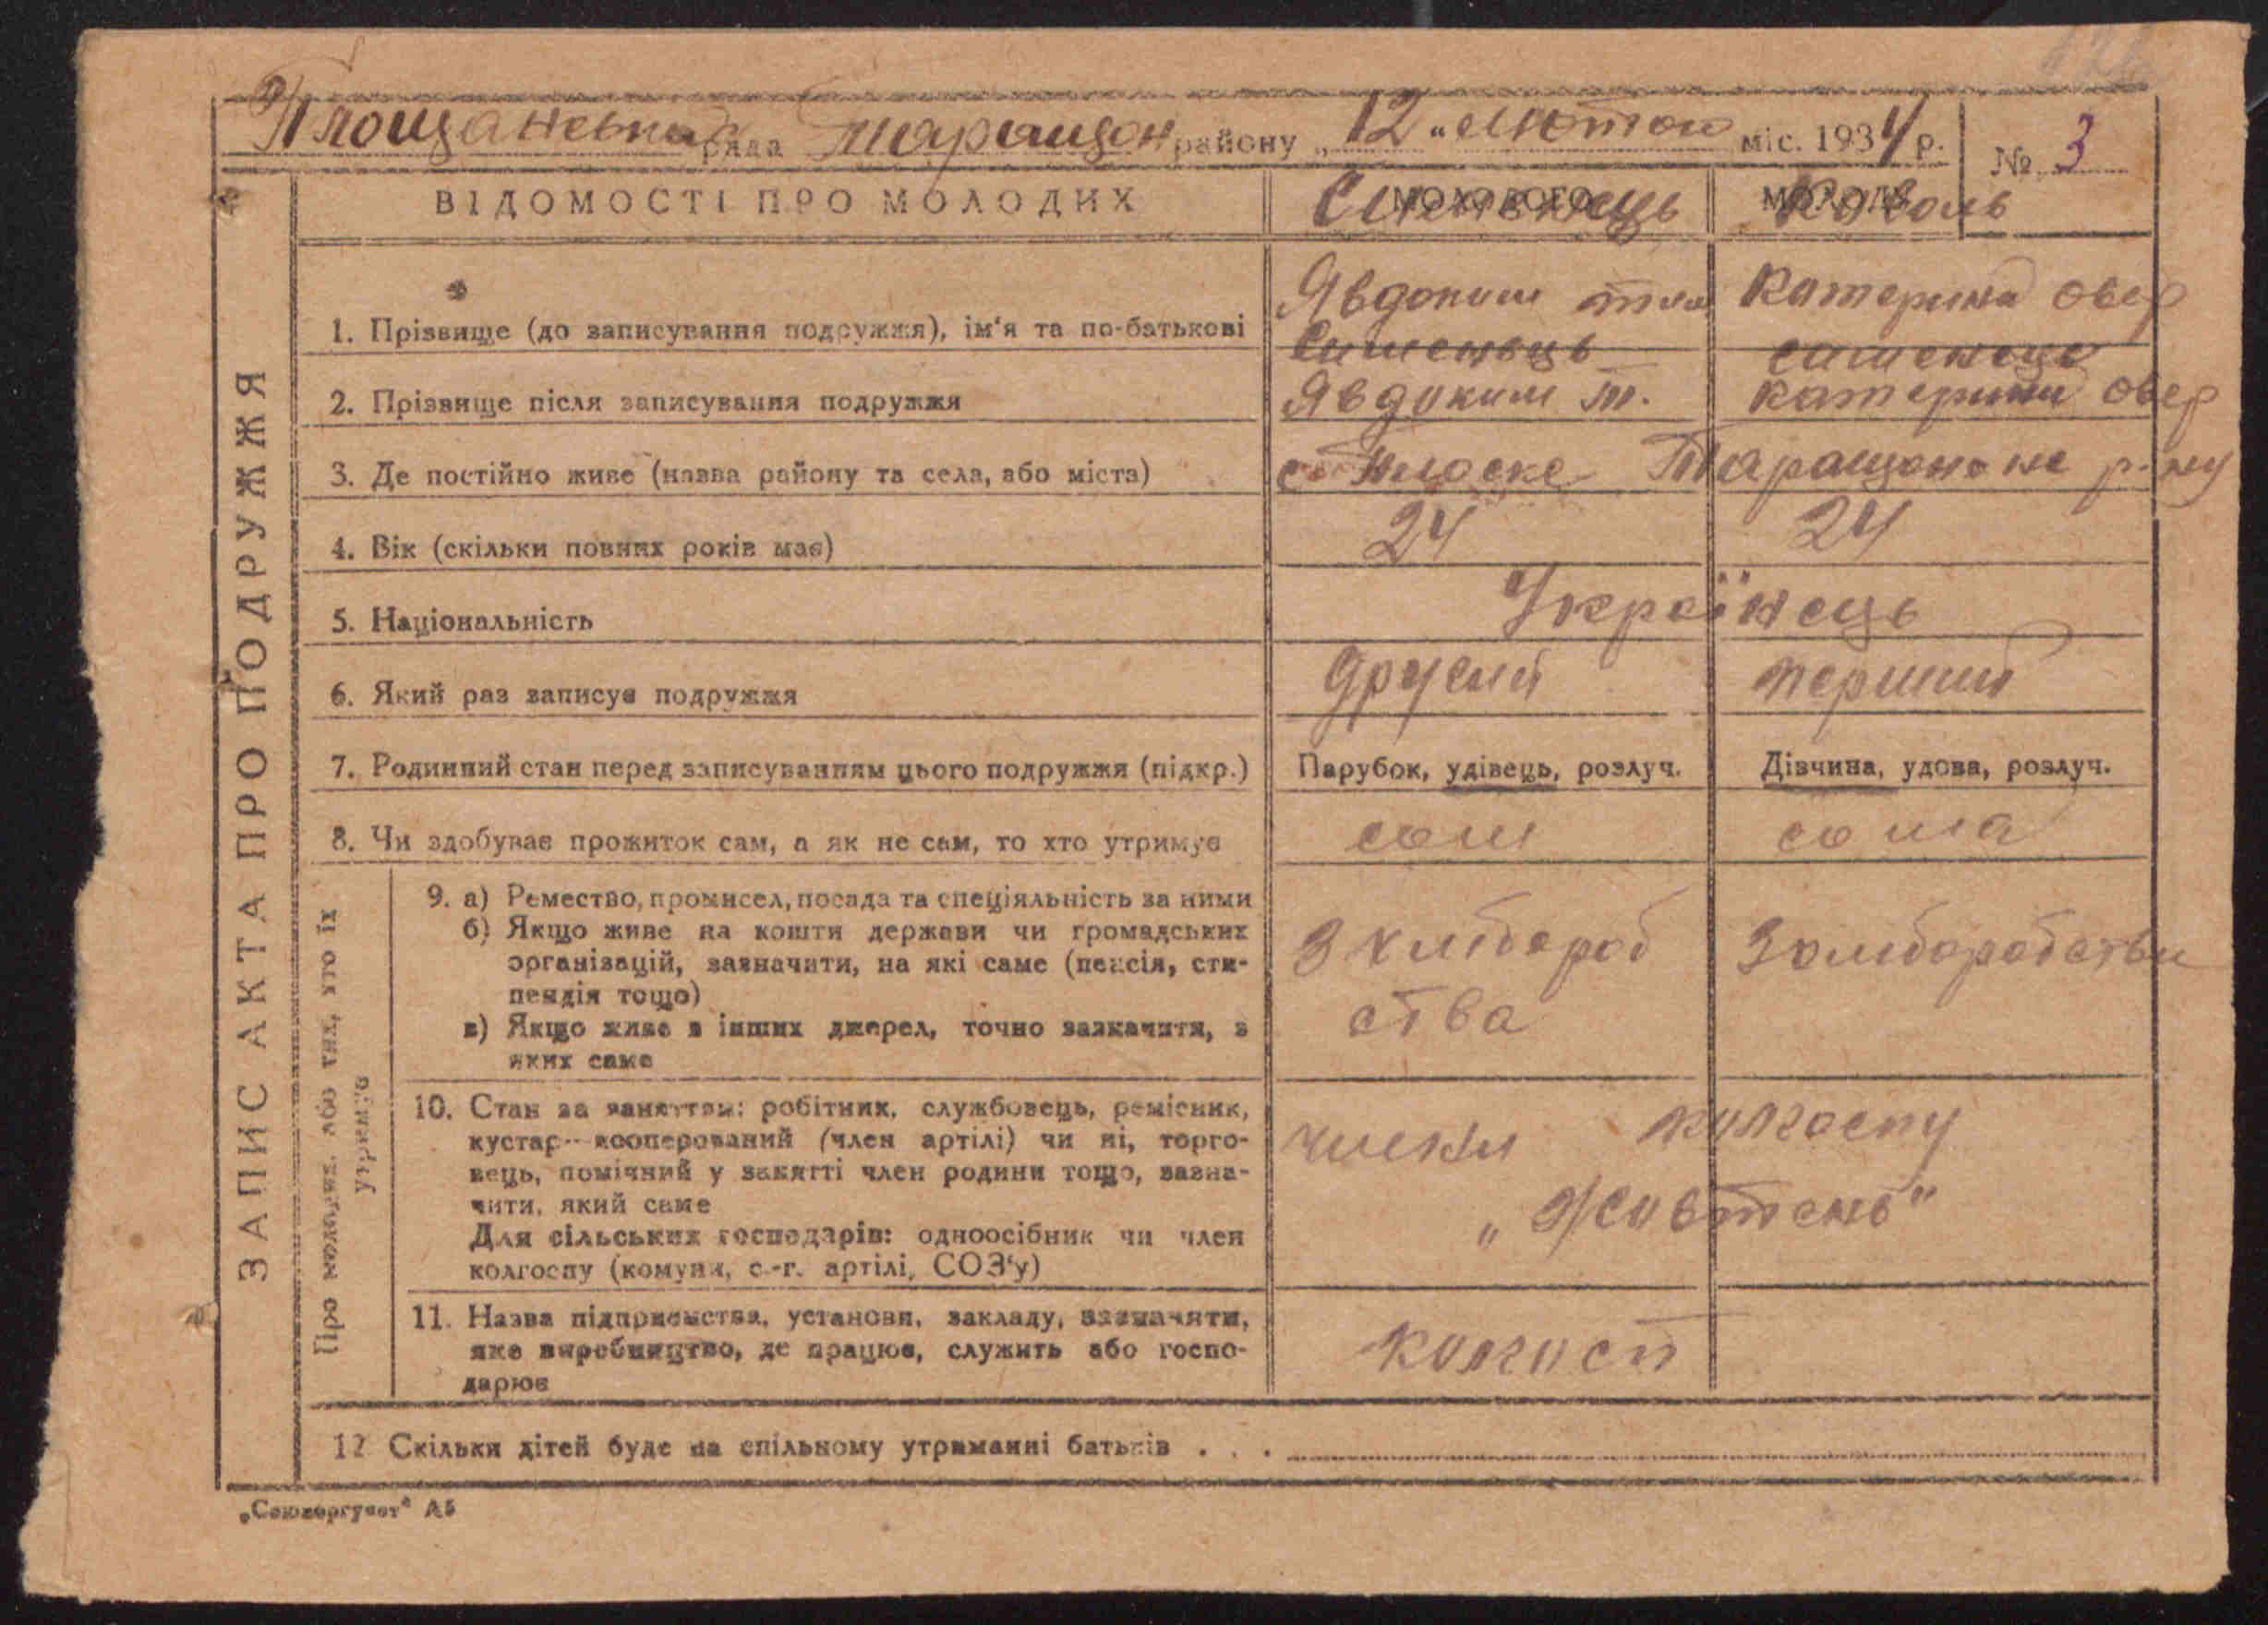 Площанська рада Таращан району „12“ Лютого міс. 1934 р. № 3
ЗАПИС АКТА ПРО ПОДРУЖЖЯ
ВІДОМОСТІ ПРО МОЛОДИХ
МОЛОДОГО
МОЛОДОЇ
Коваль
1. Прізвище (до записування подружжя), ім‘я та по-батькові
Явдоким
Катерина Овер
2. Прізвище після записування подружжя
Явдоким Т.
Катерина Овер
3. Де постійно живе (назва району та села, або міста)
с. Плоске Таращанське р-ну
4. Вік (скільки повних років має)
24
24
5. Національність
Українець
6. Який раз записує подружжя
другий
перший
7. Родинний стан перед записуванням цього подружжя (підкр.)
Парубок, удівець, розлуч.
Дівчина, удова, розлуч.
8. Чи здобуває прожиток сам, а як не сам, то хто утримує
сам
сама
Про молодих, або тих, хто їх
утримує
9. а)Ремество, промисел, посада та спеціяльність за ними
б) Якщо живе на кошти держави чи громадських
організацій, зазначити, на які саме (пенсія, сти-
пендія тощо)
в) Якщо живе з інших джерел, точно зазначити, з
яких саме
З хлібороб
ства
10. Стан за заняттям: робітник, службовець, ремісник,
кустар-кооперований (член артілі) чи ні, торго-
вець, помічний у занятті член родини тощо, зазна-
чити, який саме
Для сільських господарів: одноосібник чи член
колгоспу (комуни, с.-г. артілі, СОЗ‘у)
члени колгоспу
„Жовтень“
11. Назва підприємства, установи, закладу, зазначити,
яке виробництво, де працює, служить або госпо-
дарює
колгосп
12 Скільки дітей буде на спільному утриманні батьків . . .
„Союзоргучет“ А5